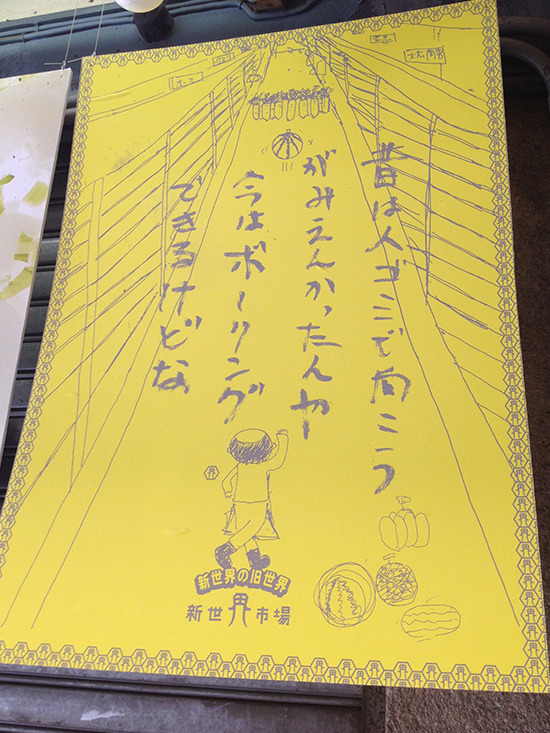 昔は人ゴミで向こう
がみえんかったんや
今はボーリング
できるけどな
新世界の旧世界
新世界市場